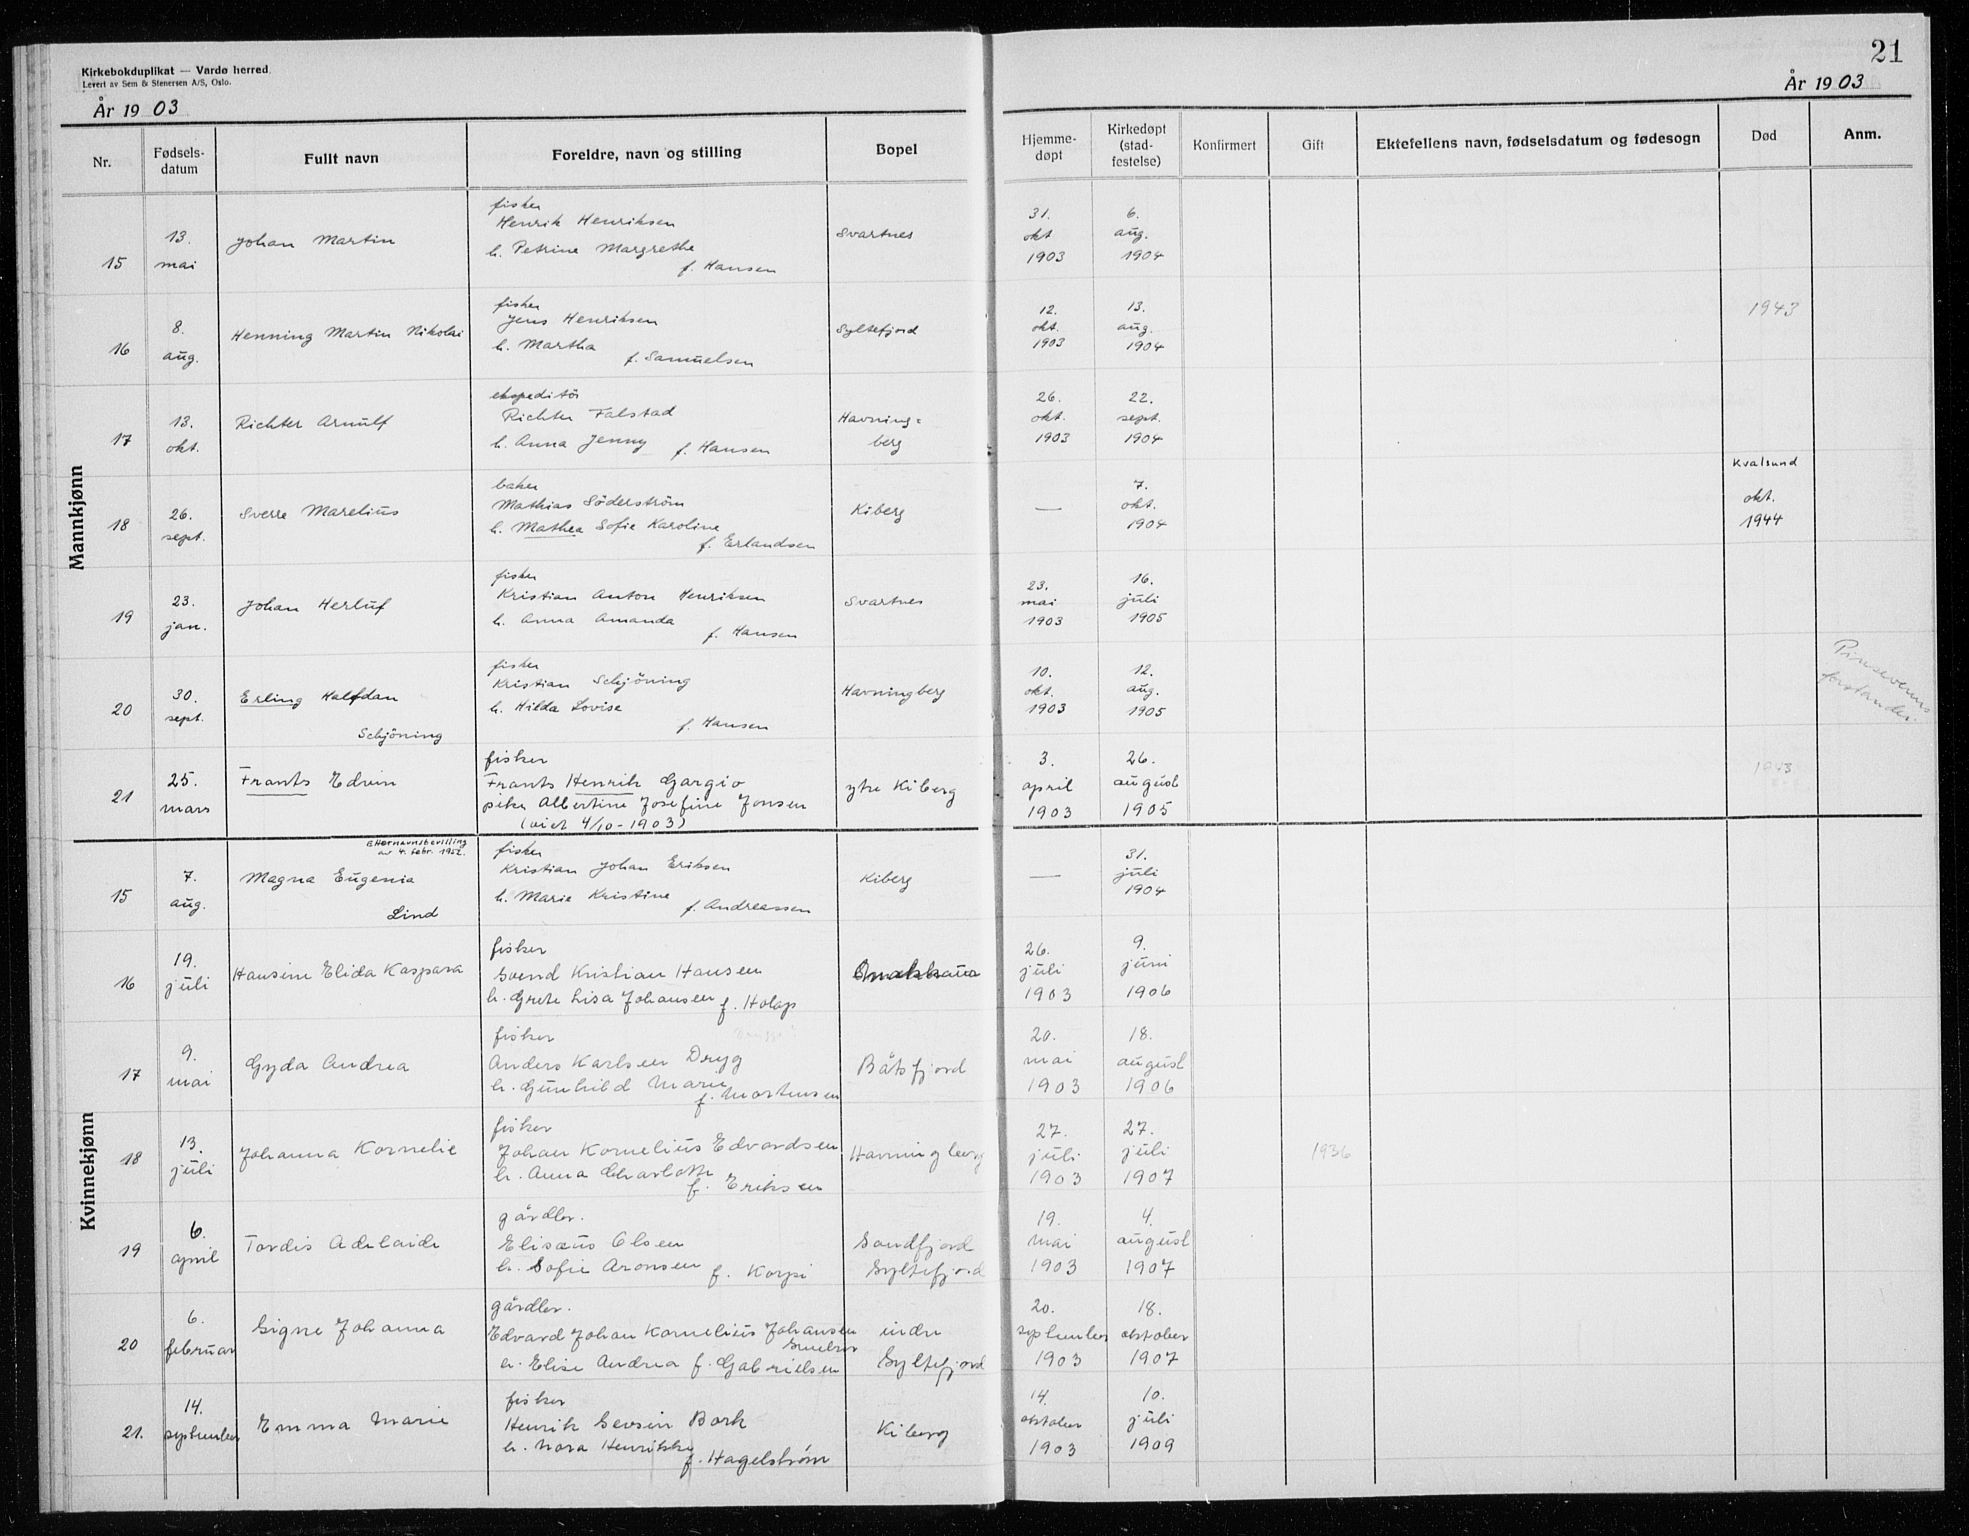 Kirkebokduplikat — Vardø herred.
Levert av Sem & Stenersen A/S, Oslo.
År 1903
21
År 1903
Nr. Fødsels-datum Fullt navn Foreldre, navn og stilling Bopel Hjemme-døpt Kirkedøpt (stad-festelse) Konfirmert Gift Ektefellens navn, fødselsdatum og fødesogn Død Anm.
Mannkjønn
fisker
15 13. mai Johan Martin Henrik Henriksen Svartnes 31. okt 1903 6. aug. 1904
h. Petrine Margrethe
f. Hansen
fisker
16 8. aug. Henning Martin Nikolai Jens Henriksen Syltefjord 12. okt. 1903 13. aug. 1904 1943
h. Martha
f. Samuelsen
ekspeditör
17 13. okt. Richter Arnulf Richter Falstad Havning=berg 26. okt. 1903 22. sept. 1904
h. Anna Jenny f. Hansen
baker
18 26. sept. Sverre Marelius Mathias Söderström Kiberg — 7. okt. 1904 Kvalsund okt. 1944
h. Mathea Sofie Karoline
f. Erlandsen
fisker
19 23. jan. Johan Herluf Kristian Anton Henriksen Svartnes 23. mai 1903 16. juli 1905
h. Anna Amanda
f. Hansen
fisker
20 30. sept. Erling Halfdan Schjöning Kristian Schjöning Havningberg 10. okt. 1903 12. aug. 1905 Pinsevenns forstander.
h. Hilda Lovise
f. Hansen
fisker
21 25. mars Frants Edvin Frants Henrik Gargio ytre Kiberg 3. april 1903 26. august 1905 1943
pike Albertine Josefine Jonsen
(viet 4/10-1903)
Kvinnekjønn
Etternavnsbevilling av 4. febr. 1952.
fisker
15 7. aug. Magna Eugenia Lind Kristian Johan Eriksen Kiberg — 31. juli 1904
h. Marie Kristine
f. Andreassen
fisker
16 19. juli Hansine Elida Kaspara Svend Kristian Hansen 26. juli 1903 9. juni 1906
h. Grete Lisa Johansen f.
fisker
17 9. mai Gyda Andrea Anders Karlsen Dryg Båtsfjord 20. mai 1903 18. august 1906
h. Gunhild Marie
f. Mortensen
fisker
18 13. juli Johanna Kornelie Johan Kornelius Edvardsen Havningberg 27. juli 1903 27. juli 1907 1936
h. Anna Charlotte
f. Eriksen
gårdbr.
19 6. april Tordis Adelaide Elisæus Olsen Sandfjord Syltefjord 19. mai 1903 4. august 1907
h. Sofie Aronsen f. Korpi
gårdbr.
20 6. februar Signe Johanna Edvard Johan Kornelius Johansen indre Syltefjord 20. september 1903 18. oktober 1907
h. Elise Andrea f. Gabrielsen
fisker
21. 14. september Emma Marie Henrik Bork Kiberg 14. oktober 1903 10. juli 1909
h. Nora Henrikke
f. Hagelstrøm